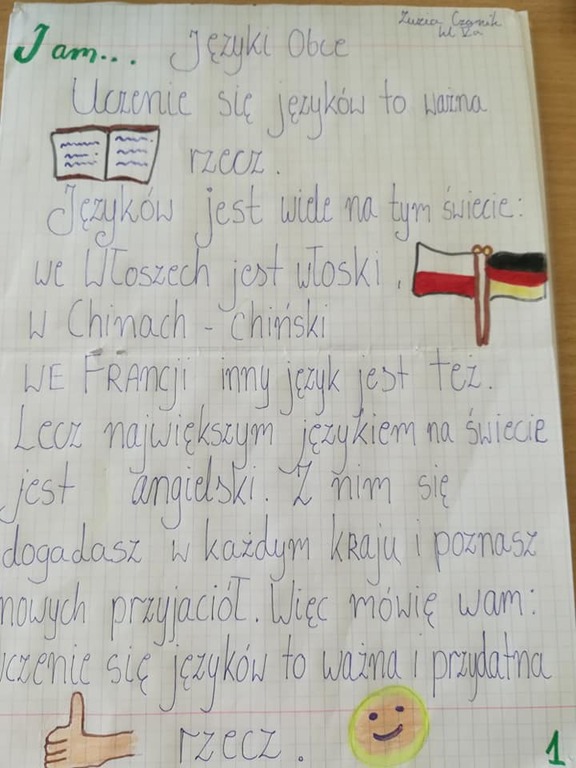 Zuzia Czarnik
kl Va
I am... Języki Obce
Uczenie się języków to ważna
rzecz.
Języków jest wiele na tym świecie:
we Włoszech jest włoski,
w Chinach - chiński
WE FRANcji inny język jest też.
Lecz największym językiem na świecie
jest angielski. Z nim się
dogadasz w każdym kraju i poznasz
nowych przyjaciół. Więc mówię wam:
uczenie się języków to ważna i przydatna
rzecz.
1